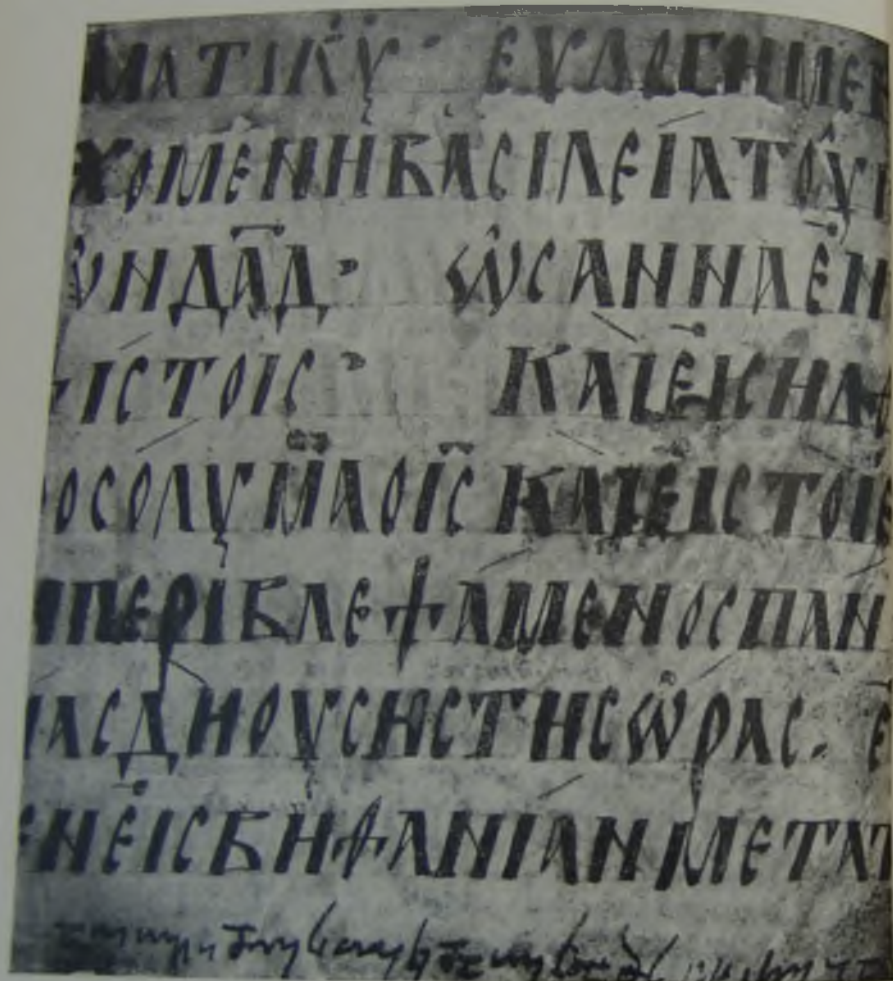 ΜΑΤΙΚ̅Υ̅· ΕΥΛΟΓΗΜΕ
ΧΟΜΕΝΗΒΑCΙΛΕΙΑΤΟΥ
ΝΔ̅Α̅Δ̅· ΩCΑΝΝΑΕΝ
ΙCΤΟΙC· ΚΑΙΕΙCΗΛ
ΟCΟΛΥΜΑΟΙ̅C̅ΚΑΙΕΙCΤΟΙ
ΠΕΡΙΒΛΕΨΑΜΕΝΟCΠΑΝ
ΑCΔΗΟΥCΗCΤΗCΩΡΑC. Ε
ΝΕΙCΒΗΘΑΝΙΑΝΜΕΤΑΤ